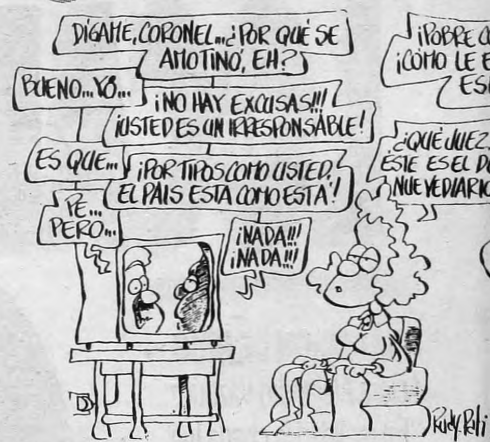 DÍGAME, CORONEL... ¿POR QUÉ SE
AMOTINÓ, EH?
BUENO... YO...
¡NO HAY EXCUSAS!!!
¡USTED ES UN IRRESPONSABLE!
ES QUE...
¡POR TIPOS COMO USTED,
EL PAIS ESTA COMO ESTA'!
PE...
PERO...
¡NADA!!!
¡NADA!!!
¡POBRE
¡COMO LE
¿QUÉ JUEZ,
ESTE ES EL
NUEVEDIARIO
Rudy. Pati